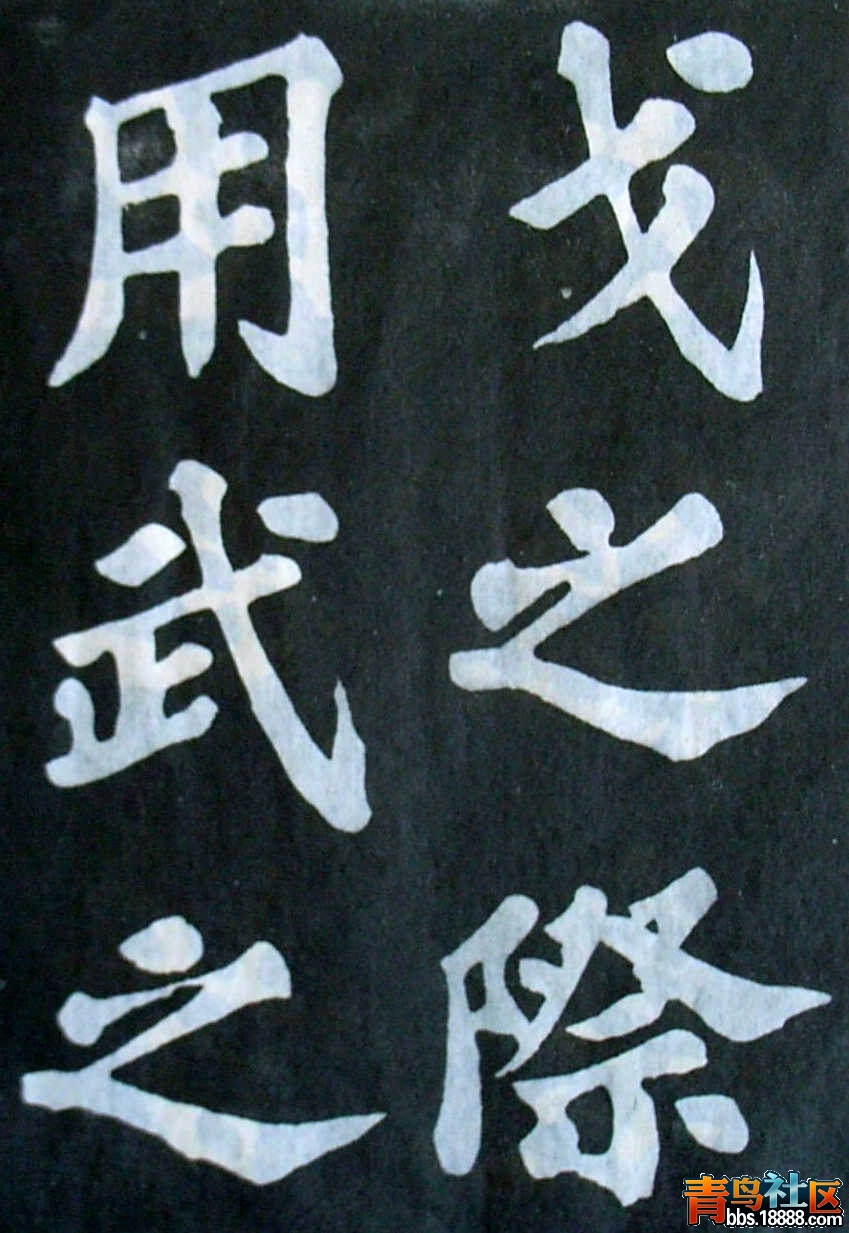 戈之際
用武之
青鸟社区
bbs.18888.com